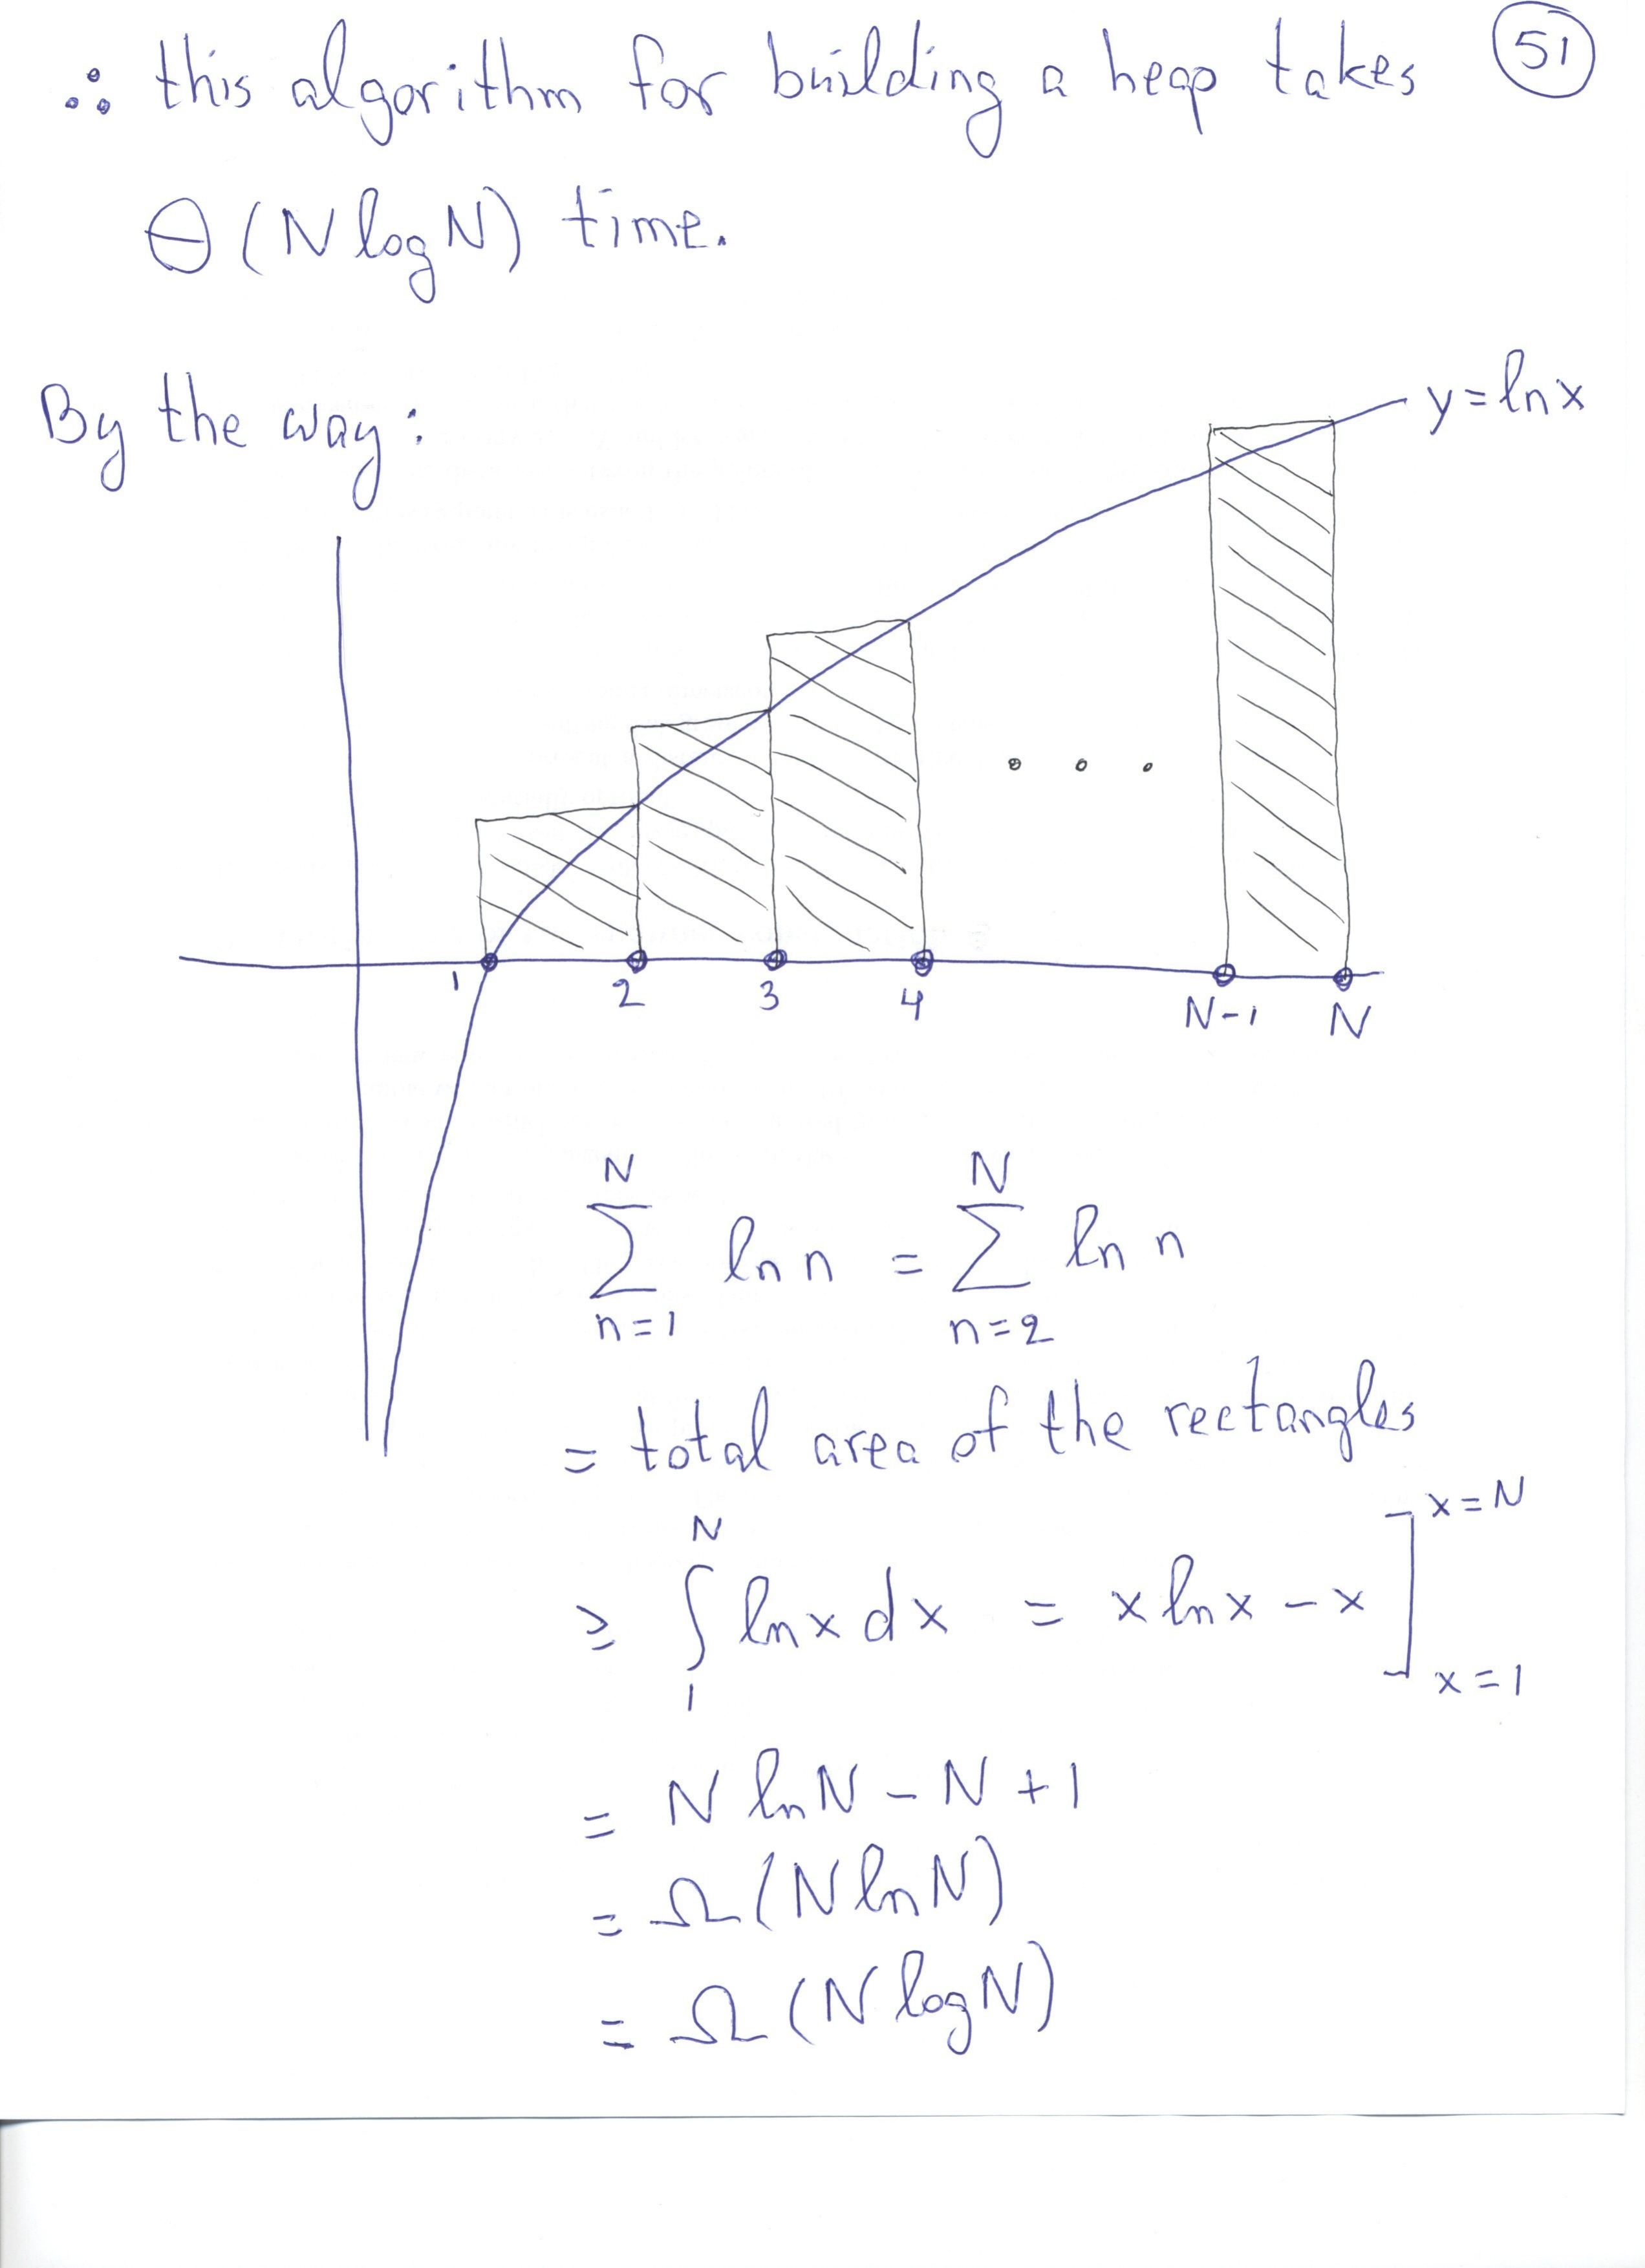 ∴ this algorithm for building a heap takes 51
Θ(N log N) time.
By the way:
y = ln x
1 2 3 4 N-1 N
N N
∑ ln n = ∑ ln n
n=1 n=2
= total area of the rectangles
≥ ∫₁ᴺ ln x dx = x ln x - x ]
x=N
x=1
= N ln N - N + 1
= Ω(N ln N)
= Ω(N log N)